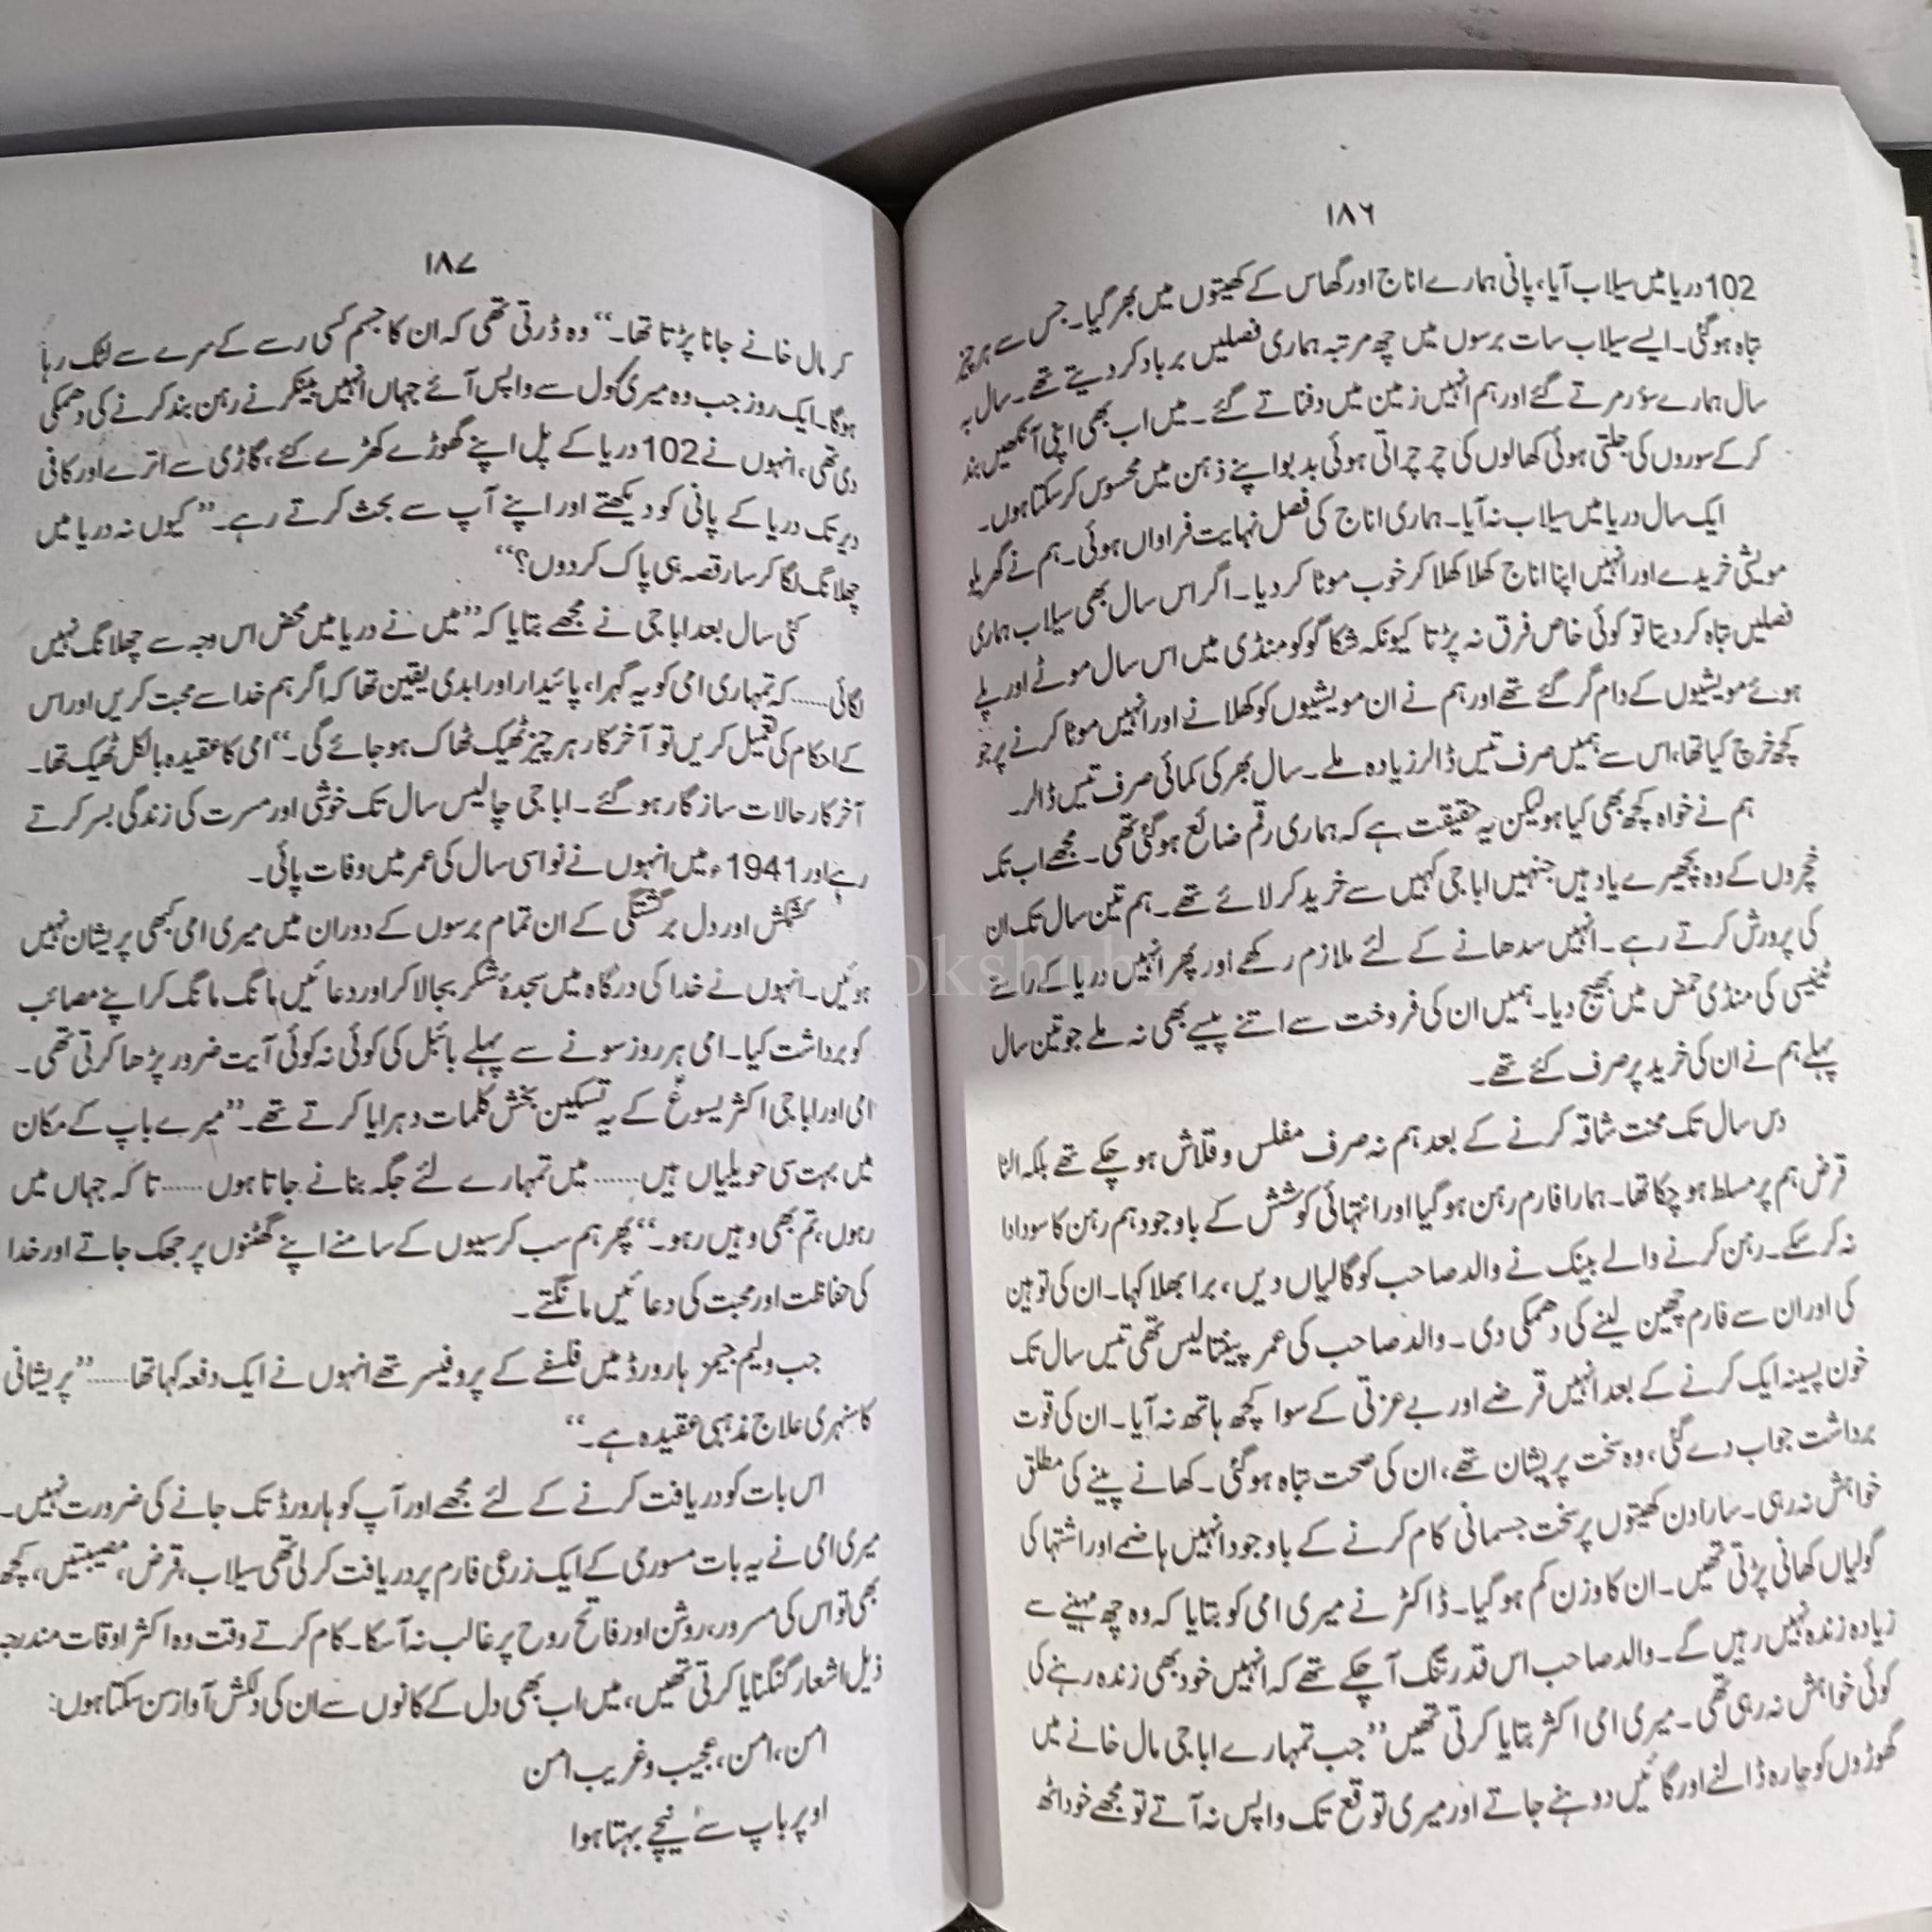 ۱۸۶
102 دریا میں سیلاب آیا، پانی ہمارے اناج اور گھاس کے کھیتوں میں بھر گیا۔ جس سے ہر چیز
تباہ ہوگئی۔ ایسے سیلاب سات برسوں میں چھ مرتبہ ہماری فصلیں برباد کر دیتے تھے۔ سال بہ
سال ہمارے سؤر مرتے گئے اور ہم انہیں زمین میں دفناتے گئے۔ میں اب بھی اپنی آنکھیں بند
کر کے سوروں کی جلتی ہوئی کھالوں کی چرچراتی ہوئی بدبو اپنے ذہن میں محسوس کر سکتا ہوں۔
ایک سال دریا میں سیلاب نہ آیا۔ ہماری اناج کی فصل نہایت فراواں ہوئی۔ ہم نے گھریلو
مویشی خریدے اور انہیں اپنا اناج کھلا کھلا کر خوب موٹا کر دیا۔ اگر اس سال بھی سیلاب ہماری
فصلیں تباہ کر دیتا تو کوئی خاص فرق نہ پڑتا کیونکہ شکاگو کو منڈی میں اس سال موٹے اور پلے
ہوئے مویشیوں کے دام گر گئے تھے اور ہم نے ان مویشیوں کو کھلانے اور انہیں موٹا کرنے پر جو
کچھ خرچ کیا تھا، اس سے ہمیں صرف تیس ڈالر زیادہ ملے۔ سال بھر کی کمائی صرف تیس ڈالر۔
ہم نے خواہ کچھ بھی کیا ہو لیکن یہ حقیقت ہے کہ ہماری رقم ضائع ہوگئی تھی۔ مجھے اب تک
خچروں کے وہ بچھیرے یاد ہیں جنہیں ابا جی کہیں سے خرید کر لائے تھے۔ ہم تین سال تک ان
کی پرورش کرتے رہے۔ انہیں سدھانے کے لئے ملازم رکھے اور پھر انہیں دریا کے راستے
ٹینیسی کی منڈی حمض میں بھیج دیا۔ ہمیں ان کی فروخت سے اتنے پیسے بھی نہ ملے جو تین سال
پہلے ہم نے ان کی خرید پر صرف کئے تھے۔
دس سال تک محنت شاقہ کرنے کے بعد ہم نہ صرف مفلس و قلاش ہو چکے تھے بلکہ الٹا
قرض ہم پر مسلط ہو چکا تھا۔ ہمارا فارم رہن ہو گیا اور انتہائی کوشش کے باوجود ہم رہن کا سود ادا
نہ کر سکے۔ رہن کرنے والے بینک نے والد صاحب کو گالیاں دیں، برا بھلا کہا۔ ان کی توہین
کی اور ان سے فارم چھین لینے کی دھمکی دی۔ والد صاحب کی عمر پینتالیس تھی تیس سال تک
خون پسینہ ایک کرنے کے بعد انہیں قرضے اور بے عزتی کے سوا کچھ ہاتھ نہ آیا۔ ان کی قوت
برداشت جواب دے گئی، وہ سخت پریشان تھے، ان کی صحت تباہ ہوگئی۔ کھانے پینے کی مطلق
خواہش نہ رہی۔ سارا دن کھیتوں پر سخت جسمانی کام کرنے کے باوجود انہیں ہاضمے اور اشتہا کی
گولیاں کھانی پڑتی تھیں۔ ان کا وزن کم ہو گیا۔ ڈاکٹر نے میری امی کو بتایا کہ وہ چھ مہینے سے
زیادہ زندہ نہیں رہیں گے۔ والد صاحب اس قدر تنگ آ چکے تھے کہ انہیں خود بھی زندہ رہنے کی
کوئی خواہش نہ رہی تھی۔ میری امی اکثر بتایا کرتی تھیں ”جب تمہارے ابا جی مال خانے میں
گھوڑوں کو چارہ ڈالنے اور گائیں دوہنے جاتے اور میری توقع تک واپس نہ آتے تو مجھے خود اٹھ
۱۸۷
کر مال خانے جانا پڑتا تھا۔“ وہ ڈرتی تھی کہ ان کا جسم کسی رسے کے سرے سے لٹک رہا
ہوگا۔ ایک روز جب وہ میری گول سے واپس آئے جہاں انہیں بینکر نے رہن بند کرنے کی دھمکی
دی تھی، انہوں نے 102 دریا کے پل اپنے گھوڑے کھڑے کئے، گاڑی سے اترے اور کافی
دیر تک دریا کے پانی کو دیکھتے اور اپنے آپ سے بحث کرتے رہے۔ ”کیوں نہ دریا میں
چھلانگ لگا کر سار قصہ ہی پاک کر دوں؟“
کئی سال بعد ابا جی نے مجھے بتایا کہ ”میں نے دریا میں محض اس وجہ سے چھلانگ نہیں
لگائی...... کہ تمہاری امی کو یہ گہرا، پائیدار اور ابدی یقین تھا کہ اگر ہم خدا سے محبت کریں اور اس
کے احکام کی تعمیل کریں تو آخر کار ہر چیز ٹھیک ٹھاک ہو جائے گی۔“ امی کا عقیدہ بالکل ٹھیک تھا۔
آخر کار حالات سازگار ہو گئے۔ ابا جی چالیس سال تک خوشی اور مسرت کی زندگی بسر کرتے
رہے اور 1941ء میں انہوں نے نواسی سال کی عمر میں وفات پائی۔
کشمکش اور دل برگشتگی کے ان تمام برسوں کے دوران میں میری امی کبھی پریشان نہیں
ہوئیں۔ انہوں نے خدا کی درگاہ میں سجدۂ شکر بجا لا کر اور دعائیں مانگ مانگ کر اپنے مصائب
کو برداشت کیا۔ امی ہر روز سونے سے پہلے بائبل کی کوئی نہ کوئی آیت ضرور پڑھا کرتی تھی۔
امی اور ابا جی اکثر یسوعؑ کے یہ تسکین بخش کلمات دہرایا کرتے تھے۔ ”میرے باپ کے مکان
میں بہت سی حویلیاں ہیں...... میں تمہارے لئے جگہ بنانے جاتا ہوں...... تا کہ جہاں میں
رہوں، تم بھی وہیں رہو۔“ پھر ہم سب کرسیوں کے سامنے اپنے گھٹنوں پر جھک جاتے اور خدا
کی حفاظت اور محبت کی دعائیں مانگتے۔
جب ولیم جیمز ہارورڈ میں فلسفے کے پروفیسر تھے انہوں نے ایک دفعہ کہا تھا...... ”پریشانی
کا سنہری علاج مذہبی عقیدہ ہے۔“
اس بات کو دریافت کرنے کے لئے مجھے اور آپ کو ہارورڈ تک جانے کی ضرورت نہیں۔
میری امی نے یہ بات مسوری کے ایک زرعی فارم پر دریافت کر لی تھی سیلاب، قرض، مصیبتیں، کچھ
بھی تو اس کی مسرور، روشن اور فاتح روح پر غالب نہ آ سکا۔ کام کرتے وقت وہ اکثر اوقات مندرجہ
ذیل اشعار گنگنایا کرتی تھیں، میں اب بھی دل کے کانوں سے ان کی دلکش آواز سن سکتا ہوں:
امن، امن، عجیب و غریب امن
اوپر باپ سے نیچے بہتا ہوا